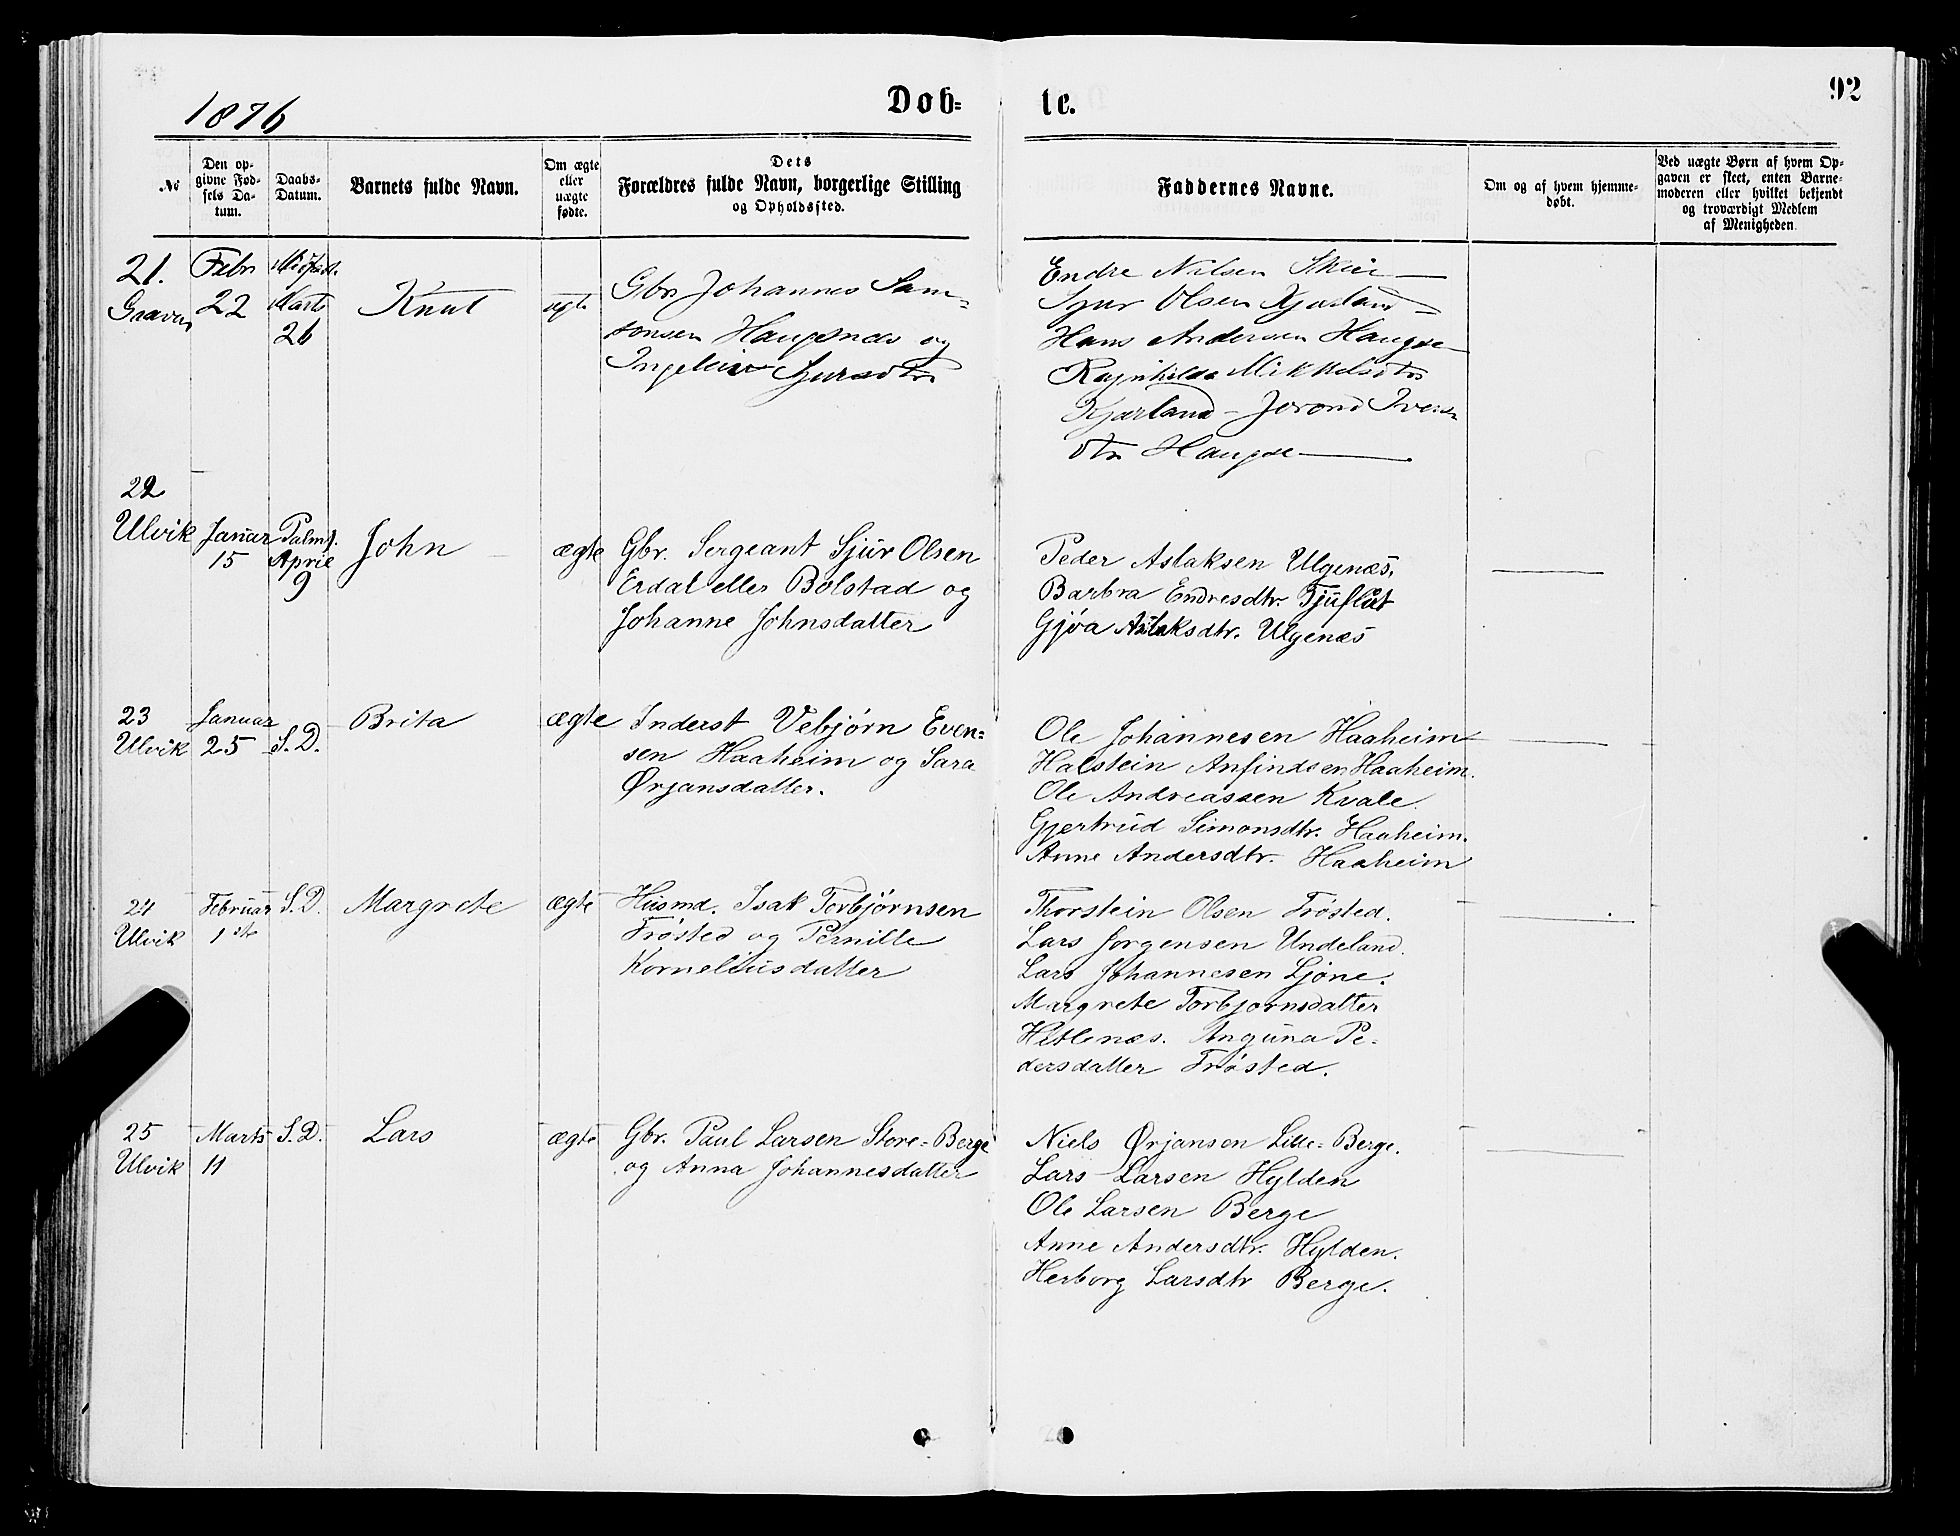 1876
Døb-
te.
92
No
Den op-
givne Fød-
sels Da-
tum.
Daabs-
Datum.
Barnets fulde Navn.
Om ægte
eller
uægte
fødte.
Dets
Forældres fulde Navn, borgerlige Stilling
og Opholdssted.
Faddernes Navne.
Om og af hvem hjemme-
døbt.
Ved uægte Børn af hvem Op-
gaven er skeet, enten Barne-
moderen eller hvilket bekjendt
og troværdigt Medlem
af Menigheden.
21.
Graven
Febr
22
Midfast.
Marts
26
Knut
ægte
Gbr Johannes Sam-
sonsen Haugsnæs og
Ingeleiv Sjursdtr
Endre Nilsen Skeie
Sjur Olsen Kjærland
Hans Andersen Haugse
Ragnhilda Mikkelsdtr
Kjærland - Jorond Ivers
dtr Haugse
22
Ulvik
Januar
15
Palms.
April
9
John
ægte
Gbr. Sergeant Sjur Olsen
Erdal eller Bolstad og
Johanne Johnsdatter
Peder Aslaksen Ulgenæs.
Barbra Endresdtr. Tjuflåt
Gjøa Aslaksdtr. Ulgenæs
23
Ulvik
Januar
25
S. D.
Brita
ægte
Inderst Vebjørn Even-
sen Haaheim og Sara
Ørjansdatter.
Ole Johannesen Haaheim
Halstein Anfindsen Haaheim.
Ole Andreassen Kvale.
Gjertrud Simonsdtr. Haaheim.
Anne Andersdtr. Haaheim
24
Ulvik
Februar
1ste
S. D.
Margrete
ægte
Husmd. Isak Torbjørnsen
Frøsted og Pernille
Korneliusdatter
Thorstein Olsen Frøsted.
Lars Jorgensen Undeland.
Lars Johannesen Ljøne.
Margrete Torbjornsdatter
Hetlenæs. Anguna Pe-
dersdatter Frøsted.
25
Ulvik
Marts
11
S. D.
Lars
ægte
Gbr. Paul Larsen Store-Berge
og Anna Johannesdatter
Niels Ørjansen Lille-Berge.
Lars Larsen Hylden
Ole Larsen Berge
Anne Andersdtr. Hylden.
Herborg Larsdtr Berge.